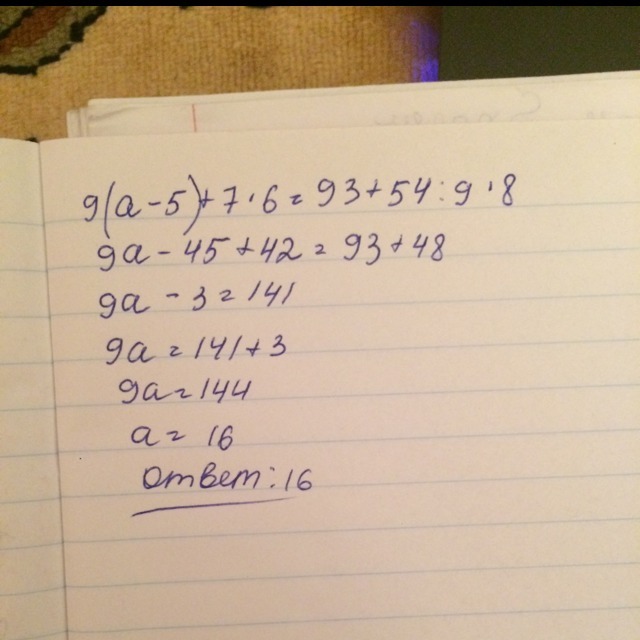 9(a-5)+7·6=93+54:9·8
9a-45+42=93+48
9a-3=141
9a=141+3
9a=144
a=16
Ответ:16